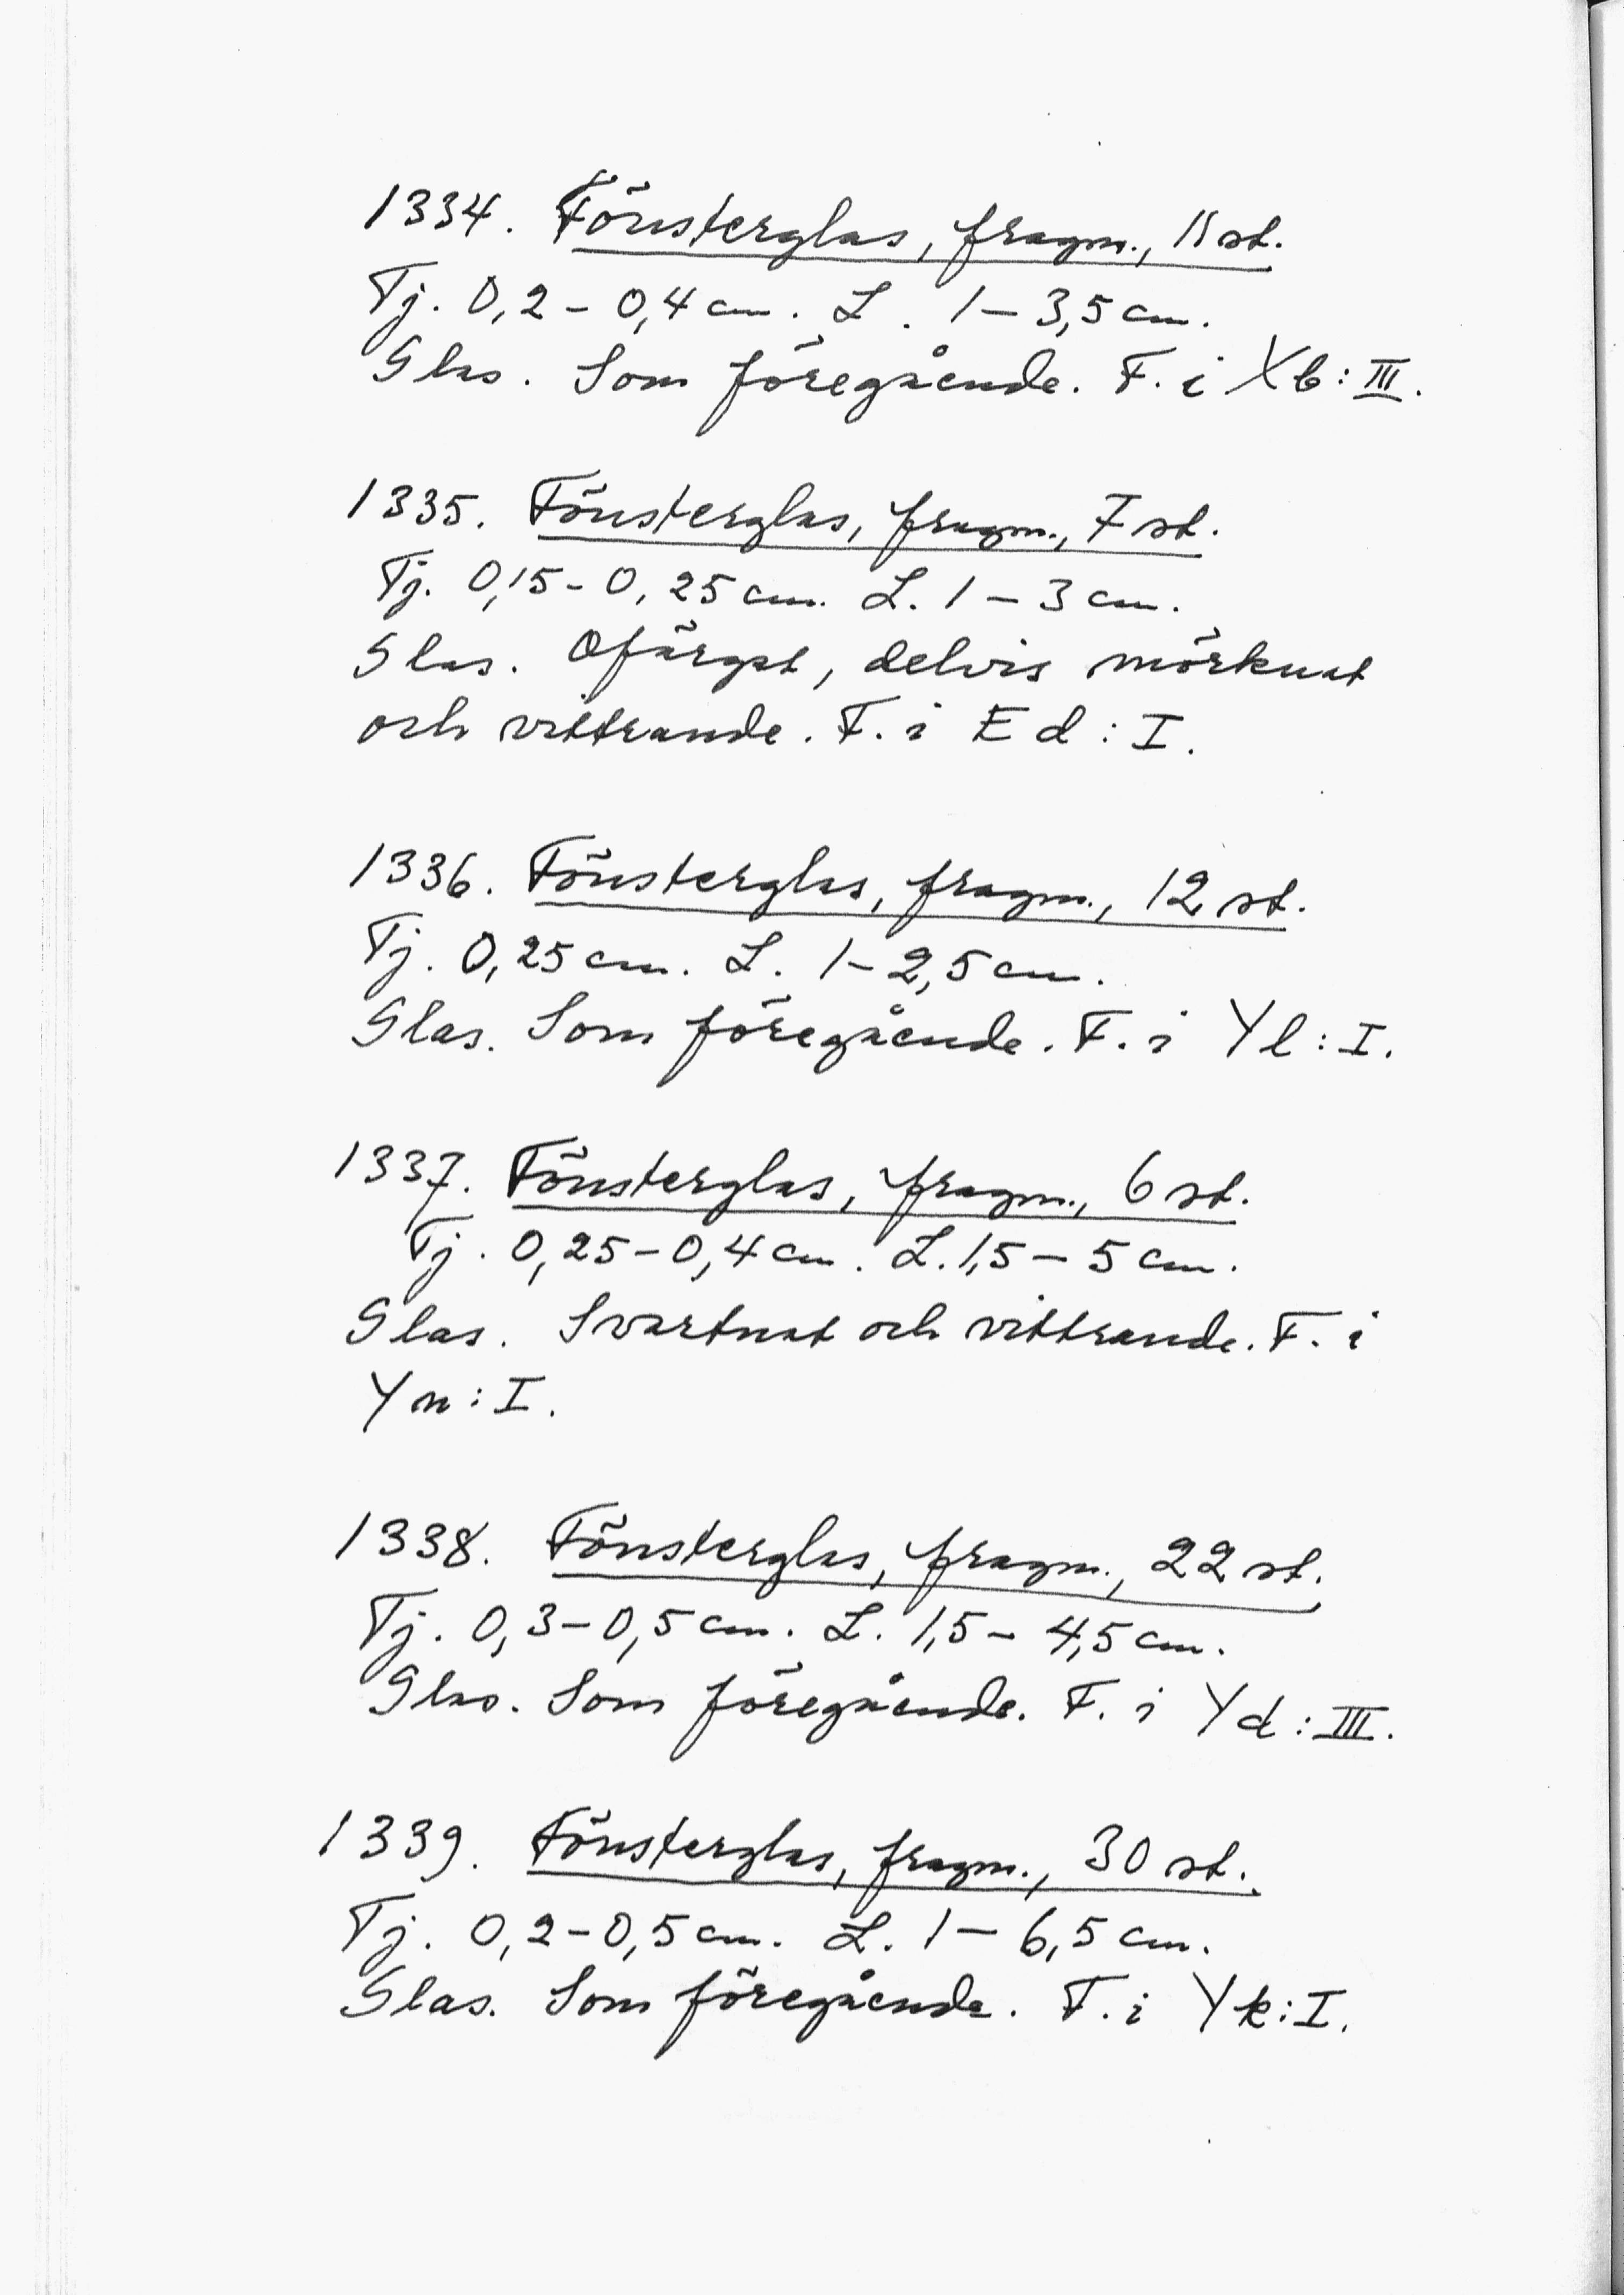 1334. Fönsterglas, fragm., 11 st.
Tj. 0,2 - 0,4 cm. L. 1 - 3,5 cm.
Glas. Som föregående. F. i Xb: III.
1335. Fönsterglas, fragm., 7 st.
Tj. 0,15 - 0,25 cm. L. 1 - 3 cm.
Glas. Ofärgat, delvis mörknat
och vittrande. F. i Ed: I.
1336. Fönsterglas, fragm., 12 st.
Tj. 0,25 cm. L. 1 - 2,5 cm.
Glas. Som föregående. F. i Yl: I.
1337. Fönsterglas, fragm., 6 st.
Tj. 0,25 - 0,4 cm. L. 1,5 - 5 cm.
Glas. Svartnat och vittrande. F. i
Yn: I.
1338. Fönsterglas, fragm., 22 st.
Tj. 0,3 - 0,5 cm. L. 1,5 - 4,5 cm.
Glas. Som föregående. F. i Yd: III.
1339. Fönsterglas, fragm., 30 st.
Tj. 0,2 - 0,5 cm. L. 1 - 6,5 cm.
Glas. Som föregående. F. i Yk: I.